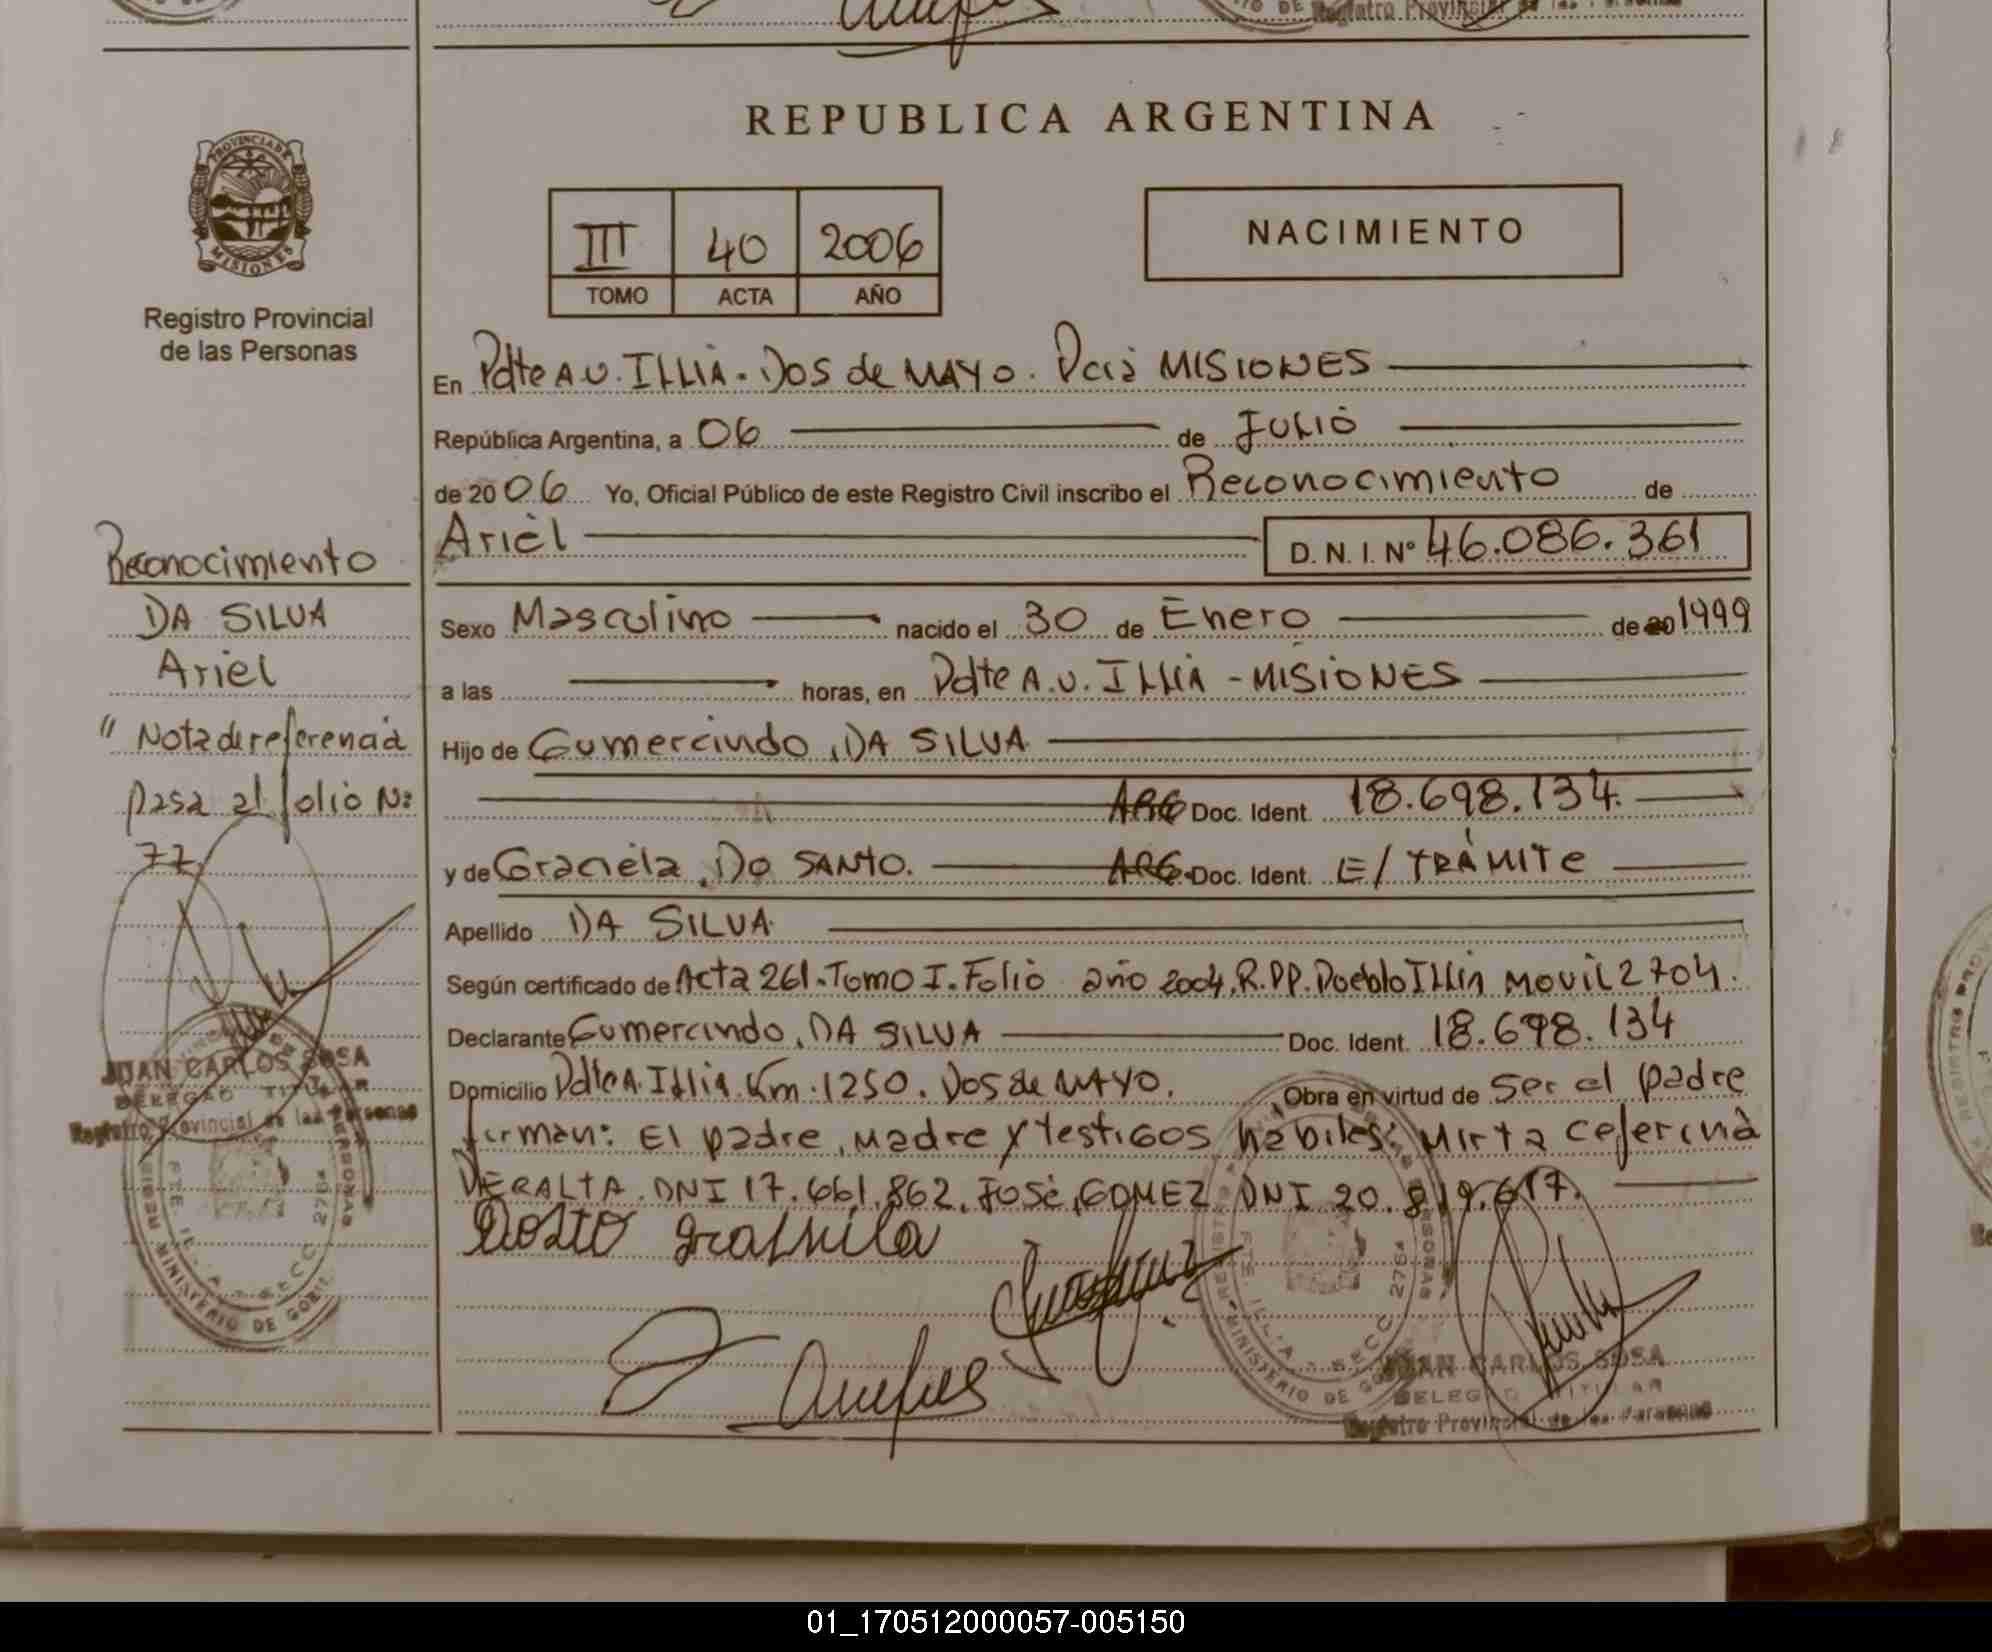 REPUBLICA ARGENTINA
PROVINCIA DE
MISIONES
Registro Provincial
de las Personas
III 40 2006
TOMO ACTA AÑO
NACIMIENTO
En Pdte A.U. ILLIA. DOS de MAYO. Pcia MISIONES
República Argentina, a 06 de JULIO
de 2006 Yo, Oficial Público de este Registro Civil inscribo el Reconocimiento de
Ariel D. N. I. Nº 46.086.361
Reconocimiento
DA SILVA
Ariel
" Nota de referencia
pasa al folio Nº
77.
Sexo Masculino nacido el 30 de Enero de 20 1999
a las horas, en Pdte A.U. ILLIA - MISIONES
Hijo de Gumercindo, DA SILVA
ARG Doc. Ident. 18.698.134.
y de Graciela, DO SANTO. ARG. Doc. Ident. E/ TRÁMITE
Apellido DA SILVA
Según certificado de Acta 261. Tomo I. Folio año 2004. R.PP. Pueblo Illia MOVIL 2704.
Declarante Gumercindo, DA SILVA Doc. Ident. 18.698.134
Domicilio Pdte A. Illia. Km. 1250. Dos de MAYO. Obra en virtud de Ser el padre
firman: El padre, Madre y testigos habiles: Mirta Ceferina
PERALTA. DNI 17.661.862. José, GOMEZ DNI 20.819.617.
JUAN CARLOS SOSA
DELEGADO TITULAR
Registro Provincial de las Personas
MINISTERIO DE GOB
PTE. ILLIA - SECC 2764
JUAN CARLOS SOSA
DELEGADO TITULAR
Registro Provincial de las Personas
MINISTERIO DE GO
PTE. ILLIA - SECC 2764
01_170512000057-005150